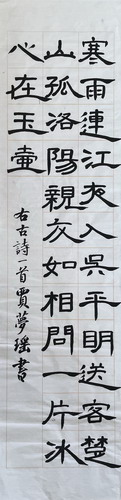 寒雨連江夜入吳平明送客楚
山孤洛陽親友如相問一片冰
心在玉壺
右古詩一首賈夢瑤書